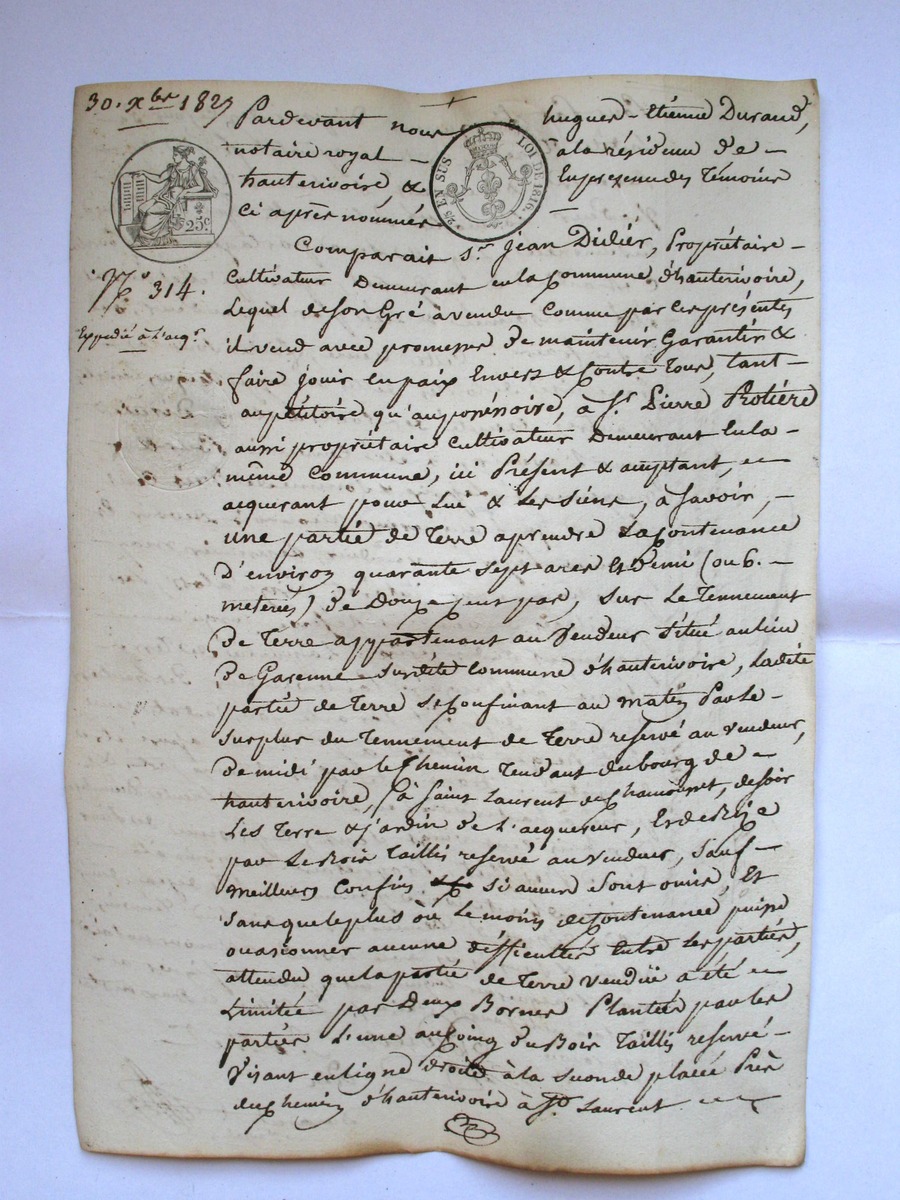 30. Xbre 1827
Pardevant nous hugues-Etienne Durand,
notaire royal — à la résidence de —
hauterivoire & En presence des Témoins
ci après nommés —
25c.
25 EN SUS LOI DE 1816.
N.º 314.
Expédié à l'acq.r
Comparait s.r jean Didier, Propriétaire —
Cultivateur Demeurant en la Commune d'hauterivoire,
Lequel de son Gré a vendu Comme par Ces présentes
il vend avec promesse de maintenir Garantir &
faire jouir En paix Envers & Contre Tous, tant-
au pétitoire qu'au possessoire, à S.r Pierre Protière
aussi propriétaire cultivateur Demeurant En la —
même Commune, ici Présent & acceptant, —
acquerant pour Lui & Les Siens, à Savoir, —
une partie de Terre a prendre La Contenance
D'environ quarante sept ares Et Demi (ou 6. —
meterées) de Douze jeux pas, sur Le Tennement
de Terre appartenant au Vendeur Situé au lieu
de Garenne Sur dite Commune d'hauterivoire, Ladite
partie de Terre Se Confinant au matin Par Le —
surplus du Tennement de Terre reservé au Vendeur,
de midi par le Chemin Tendant du bourg de —
hauterivoire, à Saint Laurent de Chamousset, de soir
Les Terre & jardin de L'acquereur, Et de Bize
par Le Bois Taillis reservé au Vendeur, Sauf —
meilleurs Confins si aucuns Sont omis, Et
Sans que le plus ou Le moins de Contenance puisse
occasionner aucune difficultés Entre Les parties,
attendu que la partie de Terre Vendue a été —
Limitée par Deux Bornes Plantées par les
parties L'une au Coing du Bois Taillis reservé —
Visant en ligne droite à la seconde placée Près
du Chemin d'hauterivoire à S.t Laurent — — —